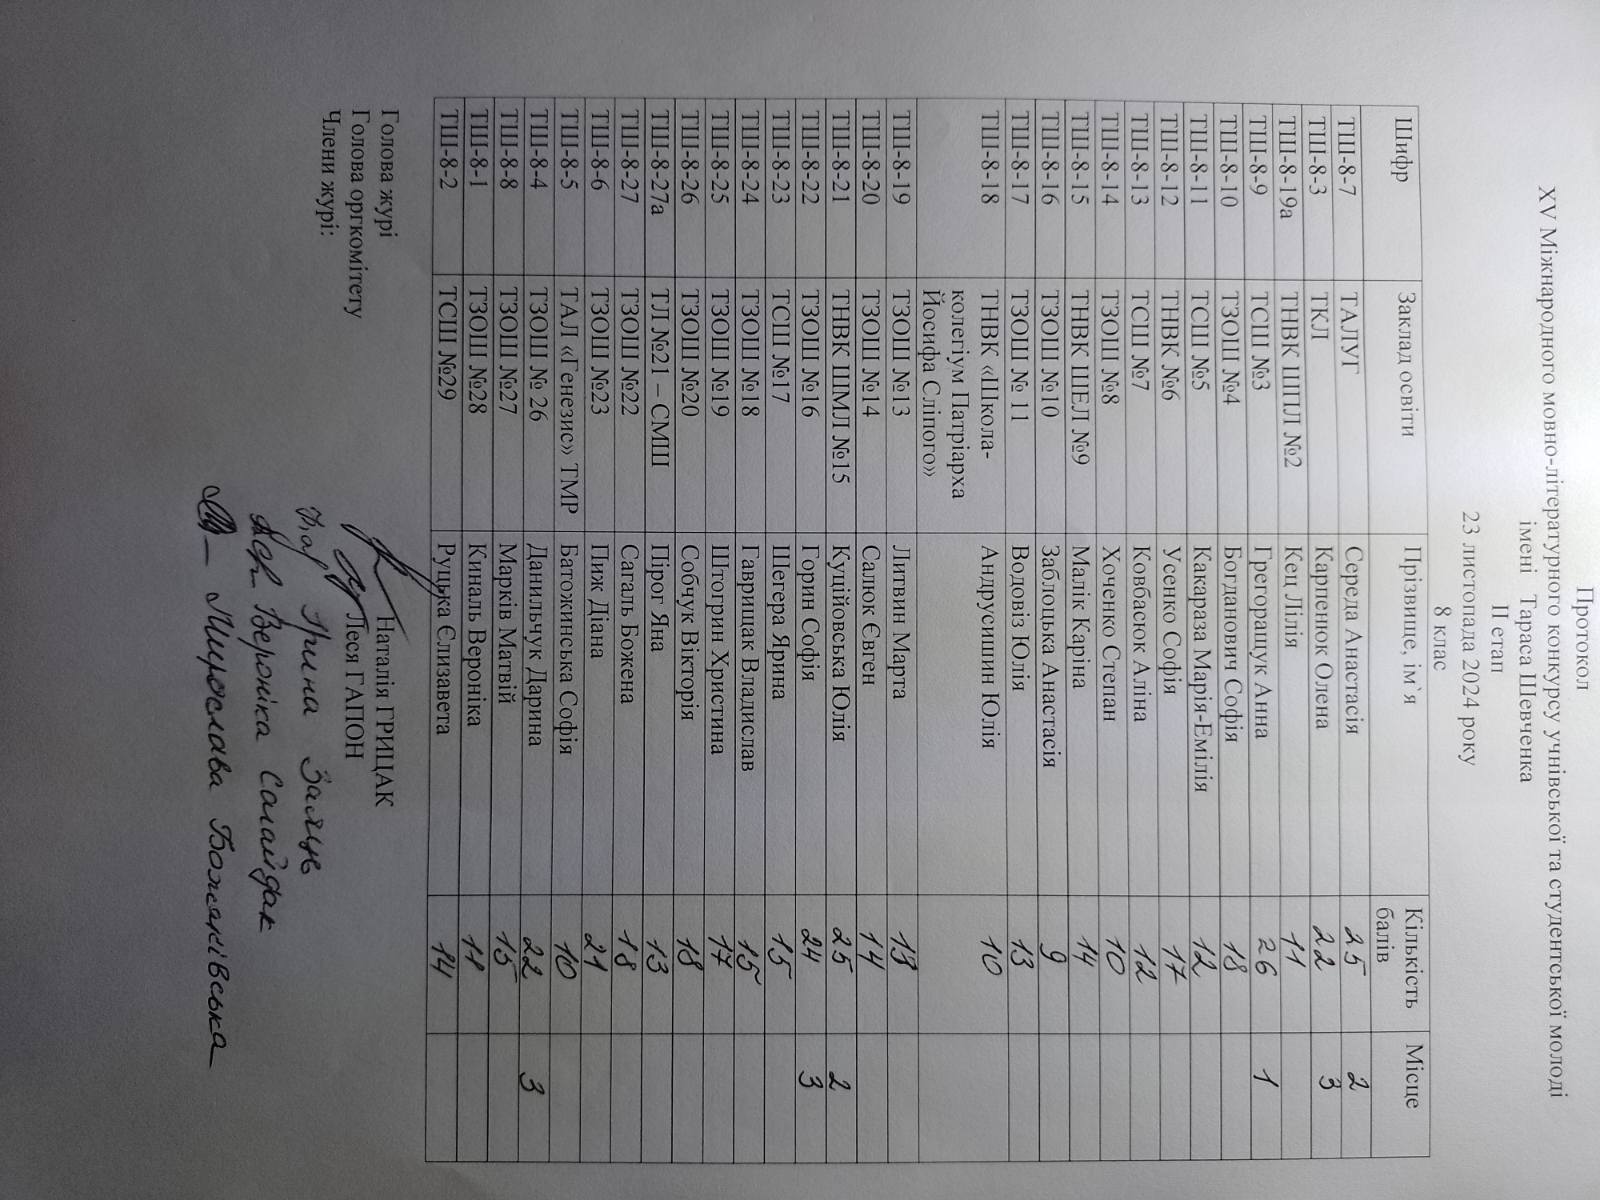 Протокол
XV Міжнародного мовно-літературного конкурсу учнівської та студентської молоді
імені Тараса Шевченка
ІІ етап
23 листопада 2024 року
8 клас
Шифр Заклад освіти Прізвище, ім`я Кількість балів Місце
ТШ-8-7 ТАЛУГ Середа Анастасія 25 2
ТШ-8-3 ТКЛ Карпенюк Олена 22 3
ТШ-8-19а ТНВК ШПЛ №2 Кец Лілія 11
ТШ-8-9 ТСШ №3 Грегоращук Анна 26 1
ТШ-8-10 ТЗОШ №4 Богданович Софія 18
ТШ-8-11 ТСШ №5 Какараза Марія-Емілія 12
ТШ-8-12 ТНВК №6 Усенко Софія 17
ТШ-8-13 ТСШ №7 Ковбасюк Аліна 12
ТШ-8-14 ТЗОШ №8 Хоченко Степан 10
ТШ-8-15 ТНВК ШЕЛ №9 Малік Каріна 14
ТШ-8-16 ТЗОШ №10 Заблоцька Анастасія 9
ТШ-8-17 ТЗОШ № 11 Водовіз Юлія 13
ТШ-8-18 ТНВК «Школа- Андрусишин Юлія 10
колегіум Патріарха
Йосифа Сліпого»
ТШ-8-19 ТЗОШ №13 Литвин Марта 13
ТШ-8-20 ТЗОШ №14 Салюк Євген 14
ТШ-8-21 ТНВК ШМЛ №15 Куційовська Юлія 25 2
ТШ-8-22 ТЗОШ №16 Горин Софія 24 3
ТШ-8-23 ТСШ №17 Шегера Ярина 15
ТШ-8-24 ТЗОШ №18 Гаврищак Владислав 15
ТШ-8-25 ТЗОШ №19 Штогрин Христина 17
ТШ-8-26 ТЗОШ №20 Собчук Вікторія 18
ТШ-8-27а ТЛ №21 – СМШ Пірог Яна 13
ТШ-8-27 ТЗОШ №22 Сагаль Божена 18
ТШ-8-6 ТЗОШ №23 Пиж Діана 21
ТШ-8-5 ТАЛ «Генезис» ТМР Батожинська Софія 10
ТШ-8-4 ТЗОШ № 26 Данильчук Дарина 22 3
ТШ-8-8 ТЗОШ №27 Марків Матвій 15
ТШ-8-1 ТЗОШ №28 Киналь Вероніка 11
ТШ-8-2 ТСШ №29 Руцька Єлизавета 14
Голова журі Наталія ГРИЦАК
Голова оргкомітету Леся ГАПОН
Члени журі:
Ірина Заяць
Вероніка Сагайдак
Мирослава Божаківська